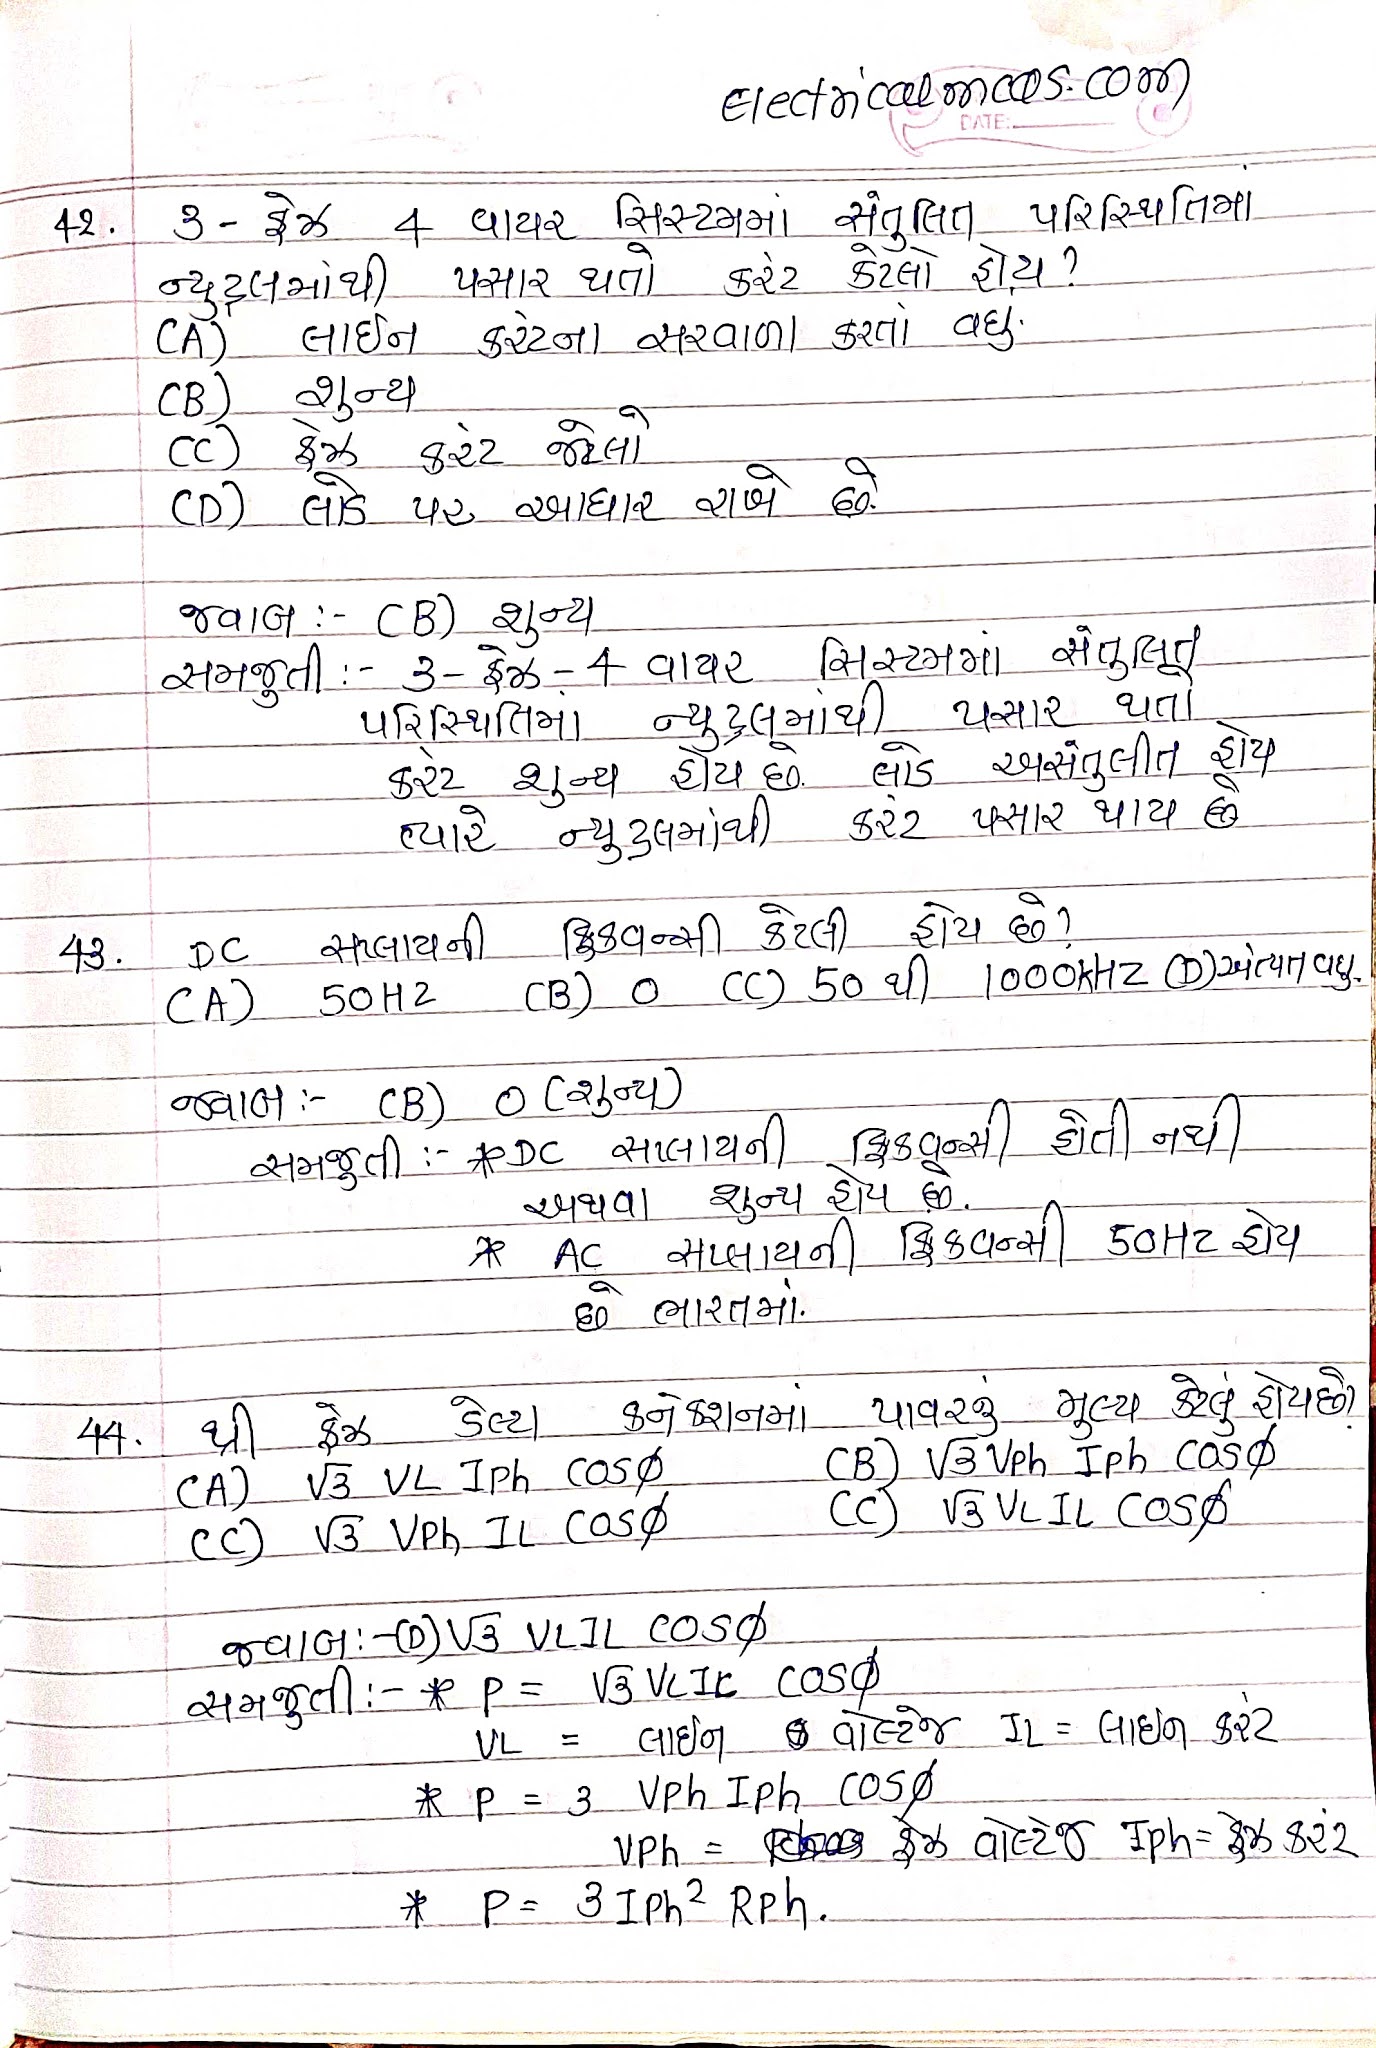 Electricalmcqs.com
DATE:
42. 3 - ફેઝ 4 વાયર સિસ્ટમમાં સંતુલિત પરિસ્થિતિમાં
ન્યુટ્રલમાંથી પસાર થતો કરંટ કેટલો હોય?
(A) લાઈન કરંટના સરવાળા કરતાં વધુ.
(B) શુન્ય
(C) ફેઝ કરંટ જેટલો
(D) લોડ પર આધાર રાખે છે.
જવાબ :- (B) શુન્ય
સમજુતી :- 3 - ફેઝ - 4 વાયર સિસ્ટમમાં સંતુલિત
પરિસ્થિતિમાં ન્યુટ્રલમાંથી પસાર થતો
કરંટ શુન્ય હોય છે. લોડ અસંતુલીત હોય
ત્યારે ન્યુટ્રલમાંથી કરંટ પસાર થાય છે
43. DC સપ્લાયની ફ્રિકવન્સી કેટલી હોય છે?
(A) 50HZ (B) 0 (C) 50 થી 1000KHZ (D) અત્યંત વધુ.
જવાબ :- (B) 0 (શુન્ય)
સમજુતી :- * DC સપ્લાયની ફ્રિકવન્સી હોતી નથી
અથવા શુન્ય હોય છે.
* AC સપ્લાયની ફ્રિકવન્સી 50HZ હોય
છે ભારતમાં.
44. થ્રી ફેઝ ડેલ્ટા કનેકશનમાં પાવરનું મુલ્ય કેટલું હોય છે?
(A) √3 VL Iph COSϕ (B) √3 Vph Iph COSϕ
(C) √3 Vph IL COSϕ (C) √3 VL IL COSϕ
જવાબ :- (D) √3 VL IL COSϕ
સમજુતી :- * P = √3 VL IL COSϕ
VL = લાઇન વોલ્ટેજ IL = લાઇન કરંટ
* P = 3 Vph Iph COSϕ
Vph = ફેઝ વોલ્ટેજ Iph = ફેઝ કરંટ
* P = 3 Iph² Rph.